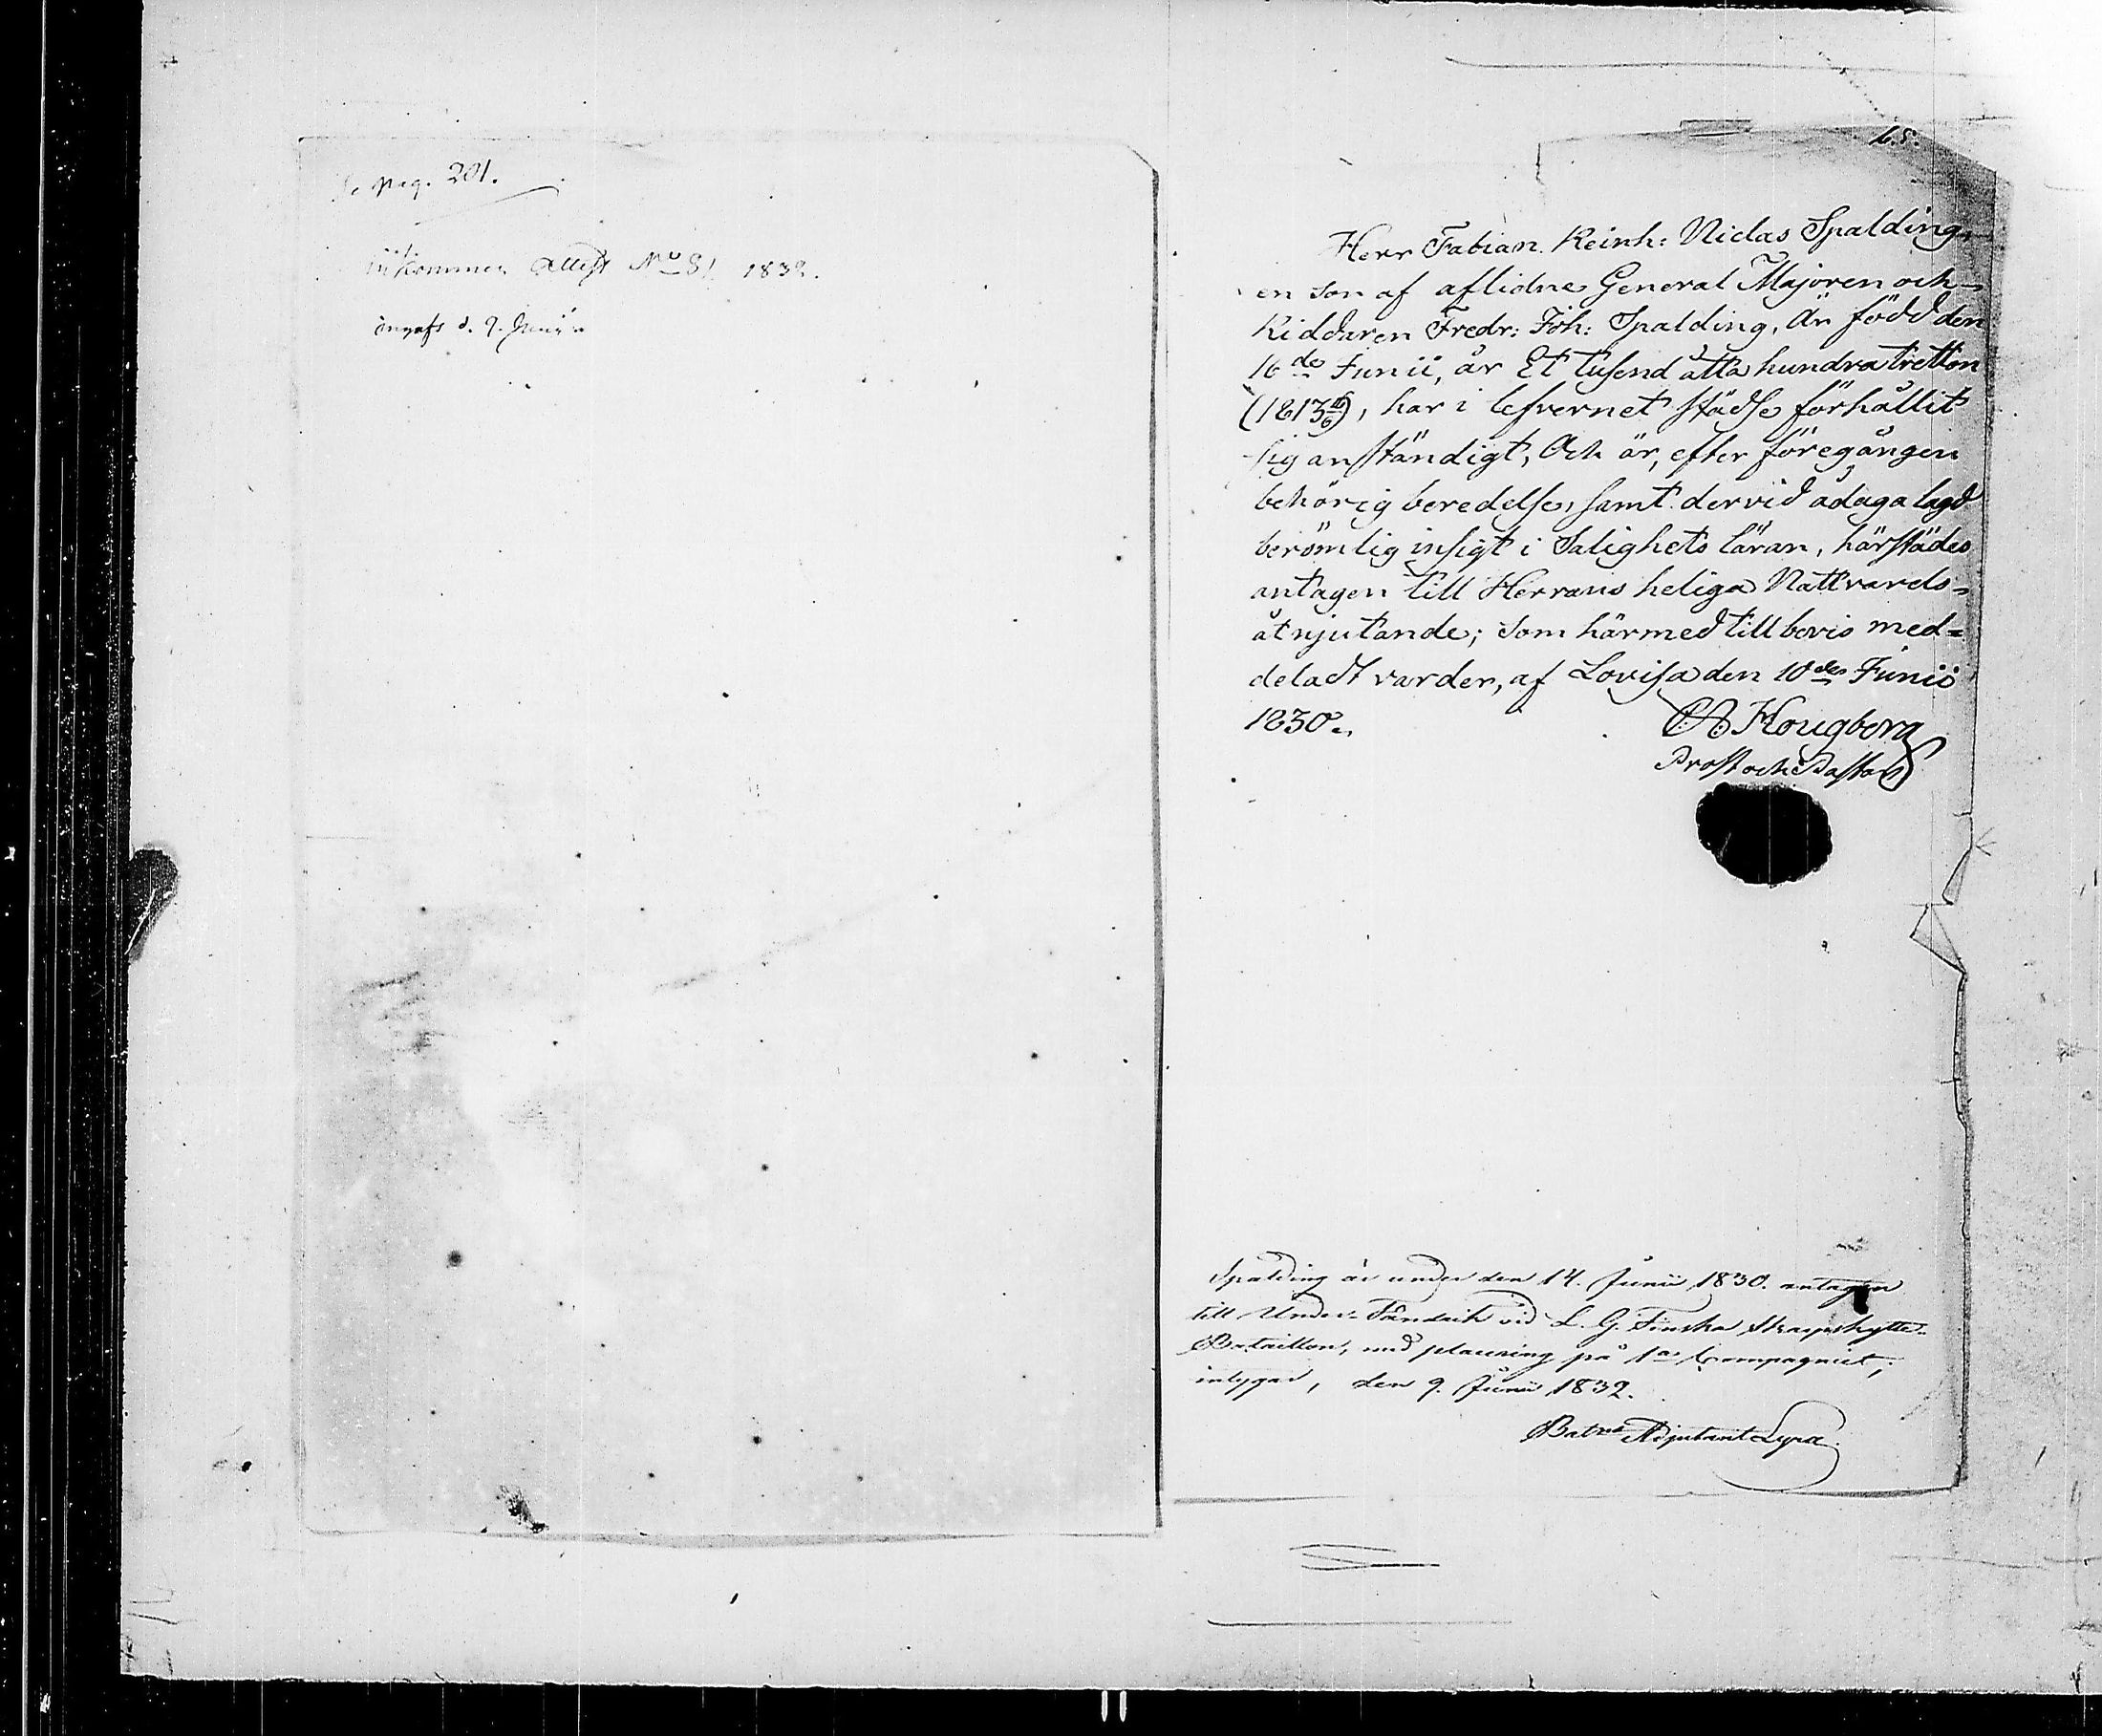 Se pag. 201.
inkommen Attest No 81 1832.
ingafs d. 9. Junii
65.
Herr Fabian Reinh: Niclas Spalding,
en son af aflidne General Majoren och
Riddaren Fredr: Joh: Spalding, är född den
16de Junii, år Et tusend åtta hundra tretton
(1813 16/6), har i lefvernet städse förhållit
sig anständigt, Och är, efter föregången
behörig beredelse, samt dervid ådagalagd
berömlig insigt i Salighets läran, härstädes
antagen till Herrans heliga Nattvards=
åtnjutande; som härmed till bevis med=
deladt varder, af Lovisa den 10de Junii
1830.
Hougberg
Prost och Pastor
Spalding är under den 14. Junii 1830. antagen
till Under-Fändrik vid L. G. Finska Skarpskytte-
Bataillon, med placering på 1a Compagniet,
intygar, den 9. Junii 1832.
Batns Adjutant Lyra.